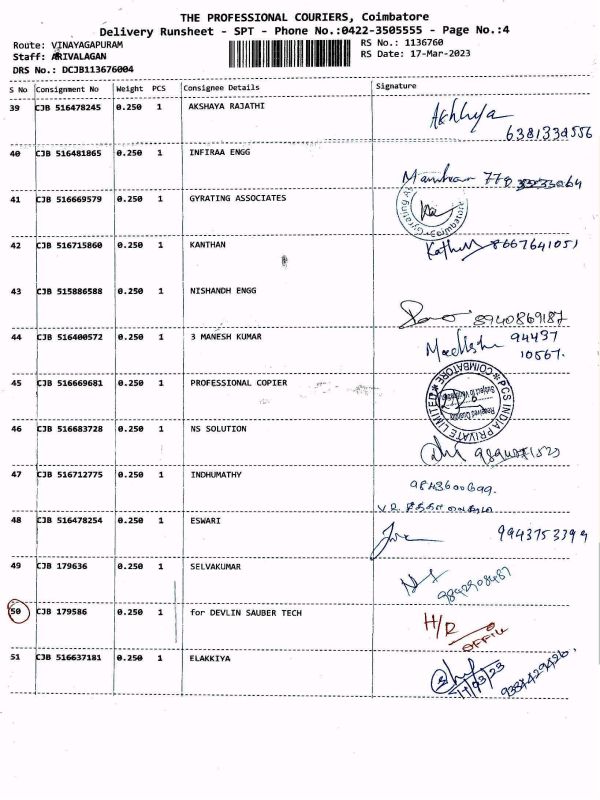 THE PROFESSIONAL COURIERS, Coimbatore
Delivery Runsheet - SPT - Phone No.:0422-3505555 - Page No.:4
Route: VINAYAGAPURAM
RS No.: 1136760
Staff: ARIVALAGAN
RS Date: 17-Mar-2023
DRS No.: DCJB113676004
S No Consignment No Weight PCS Consignee Details Signature
39 CJB 516478245 0.250 1 AKSHAYA RAJATHI
6381334556
40 CJB 516481865 0.250 1 INFIRAA ENGG
41 CJB 516669579 0.250 1 GYRATING ASSOCIATES
42 CJB 516715860 0.250 1 KANTHAN
8667641051
43 CJB 515886588 0.250 1 NISHANDH ENGG
8940869187
44 CJB 516400572 0.250 1 3 MANESH KUMAR
94437
10567.
45 CJB 516669681 0.250 1 PROFESSIONAL COPIER
PCS INDIA PRIVATE LIMITED * COIMBATORE *
46 CJB 516683728 0.250 1 NS SOLUTION
47 CJB 516712775 0.250 1 INDHUMATHY
9843600699.
48 CJB 516478254 0.250 1 ESWARI
9943753394
49 CJB 179636 0.250 1 SELVAKUMAR
50 CJB 179586 0.250 1 for DEVLIN SAUBER TECH
H/R
OFFICE
51 CJB 516637181 0.250 1 ELAKKIYA
9387429426.